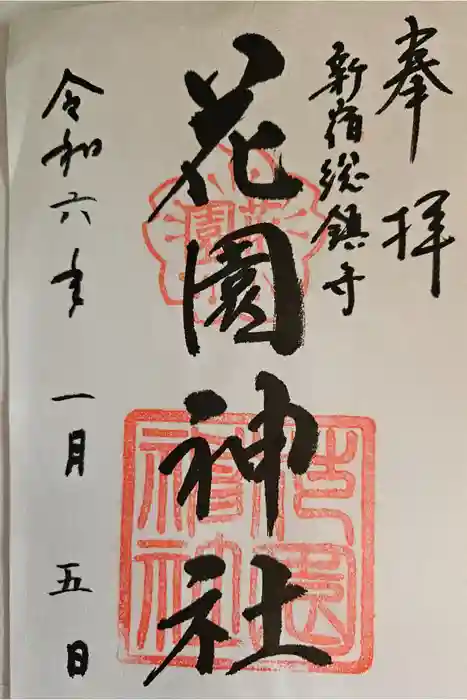 奉拝
新宿総鎮守
花園神社
令和六年 一月 五日
花園
花園神社